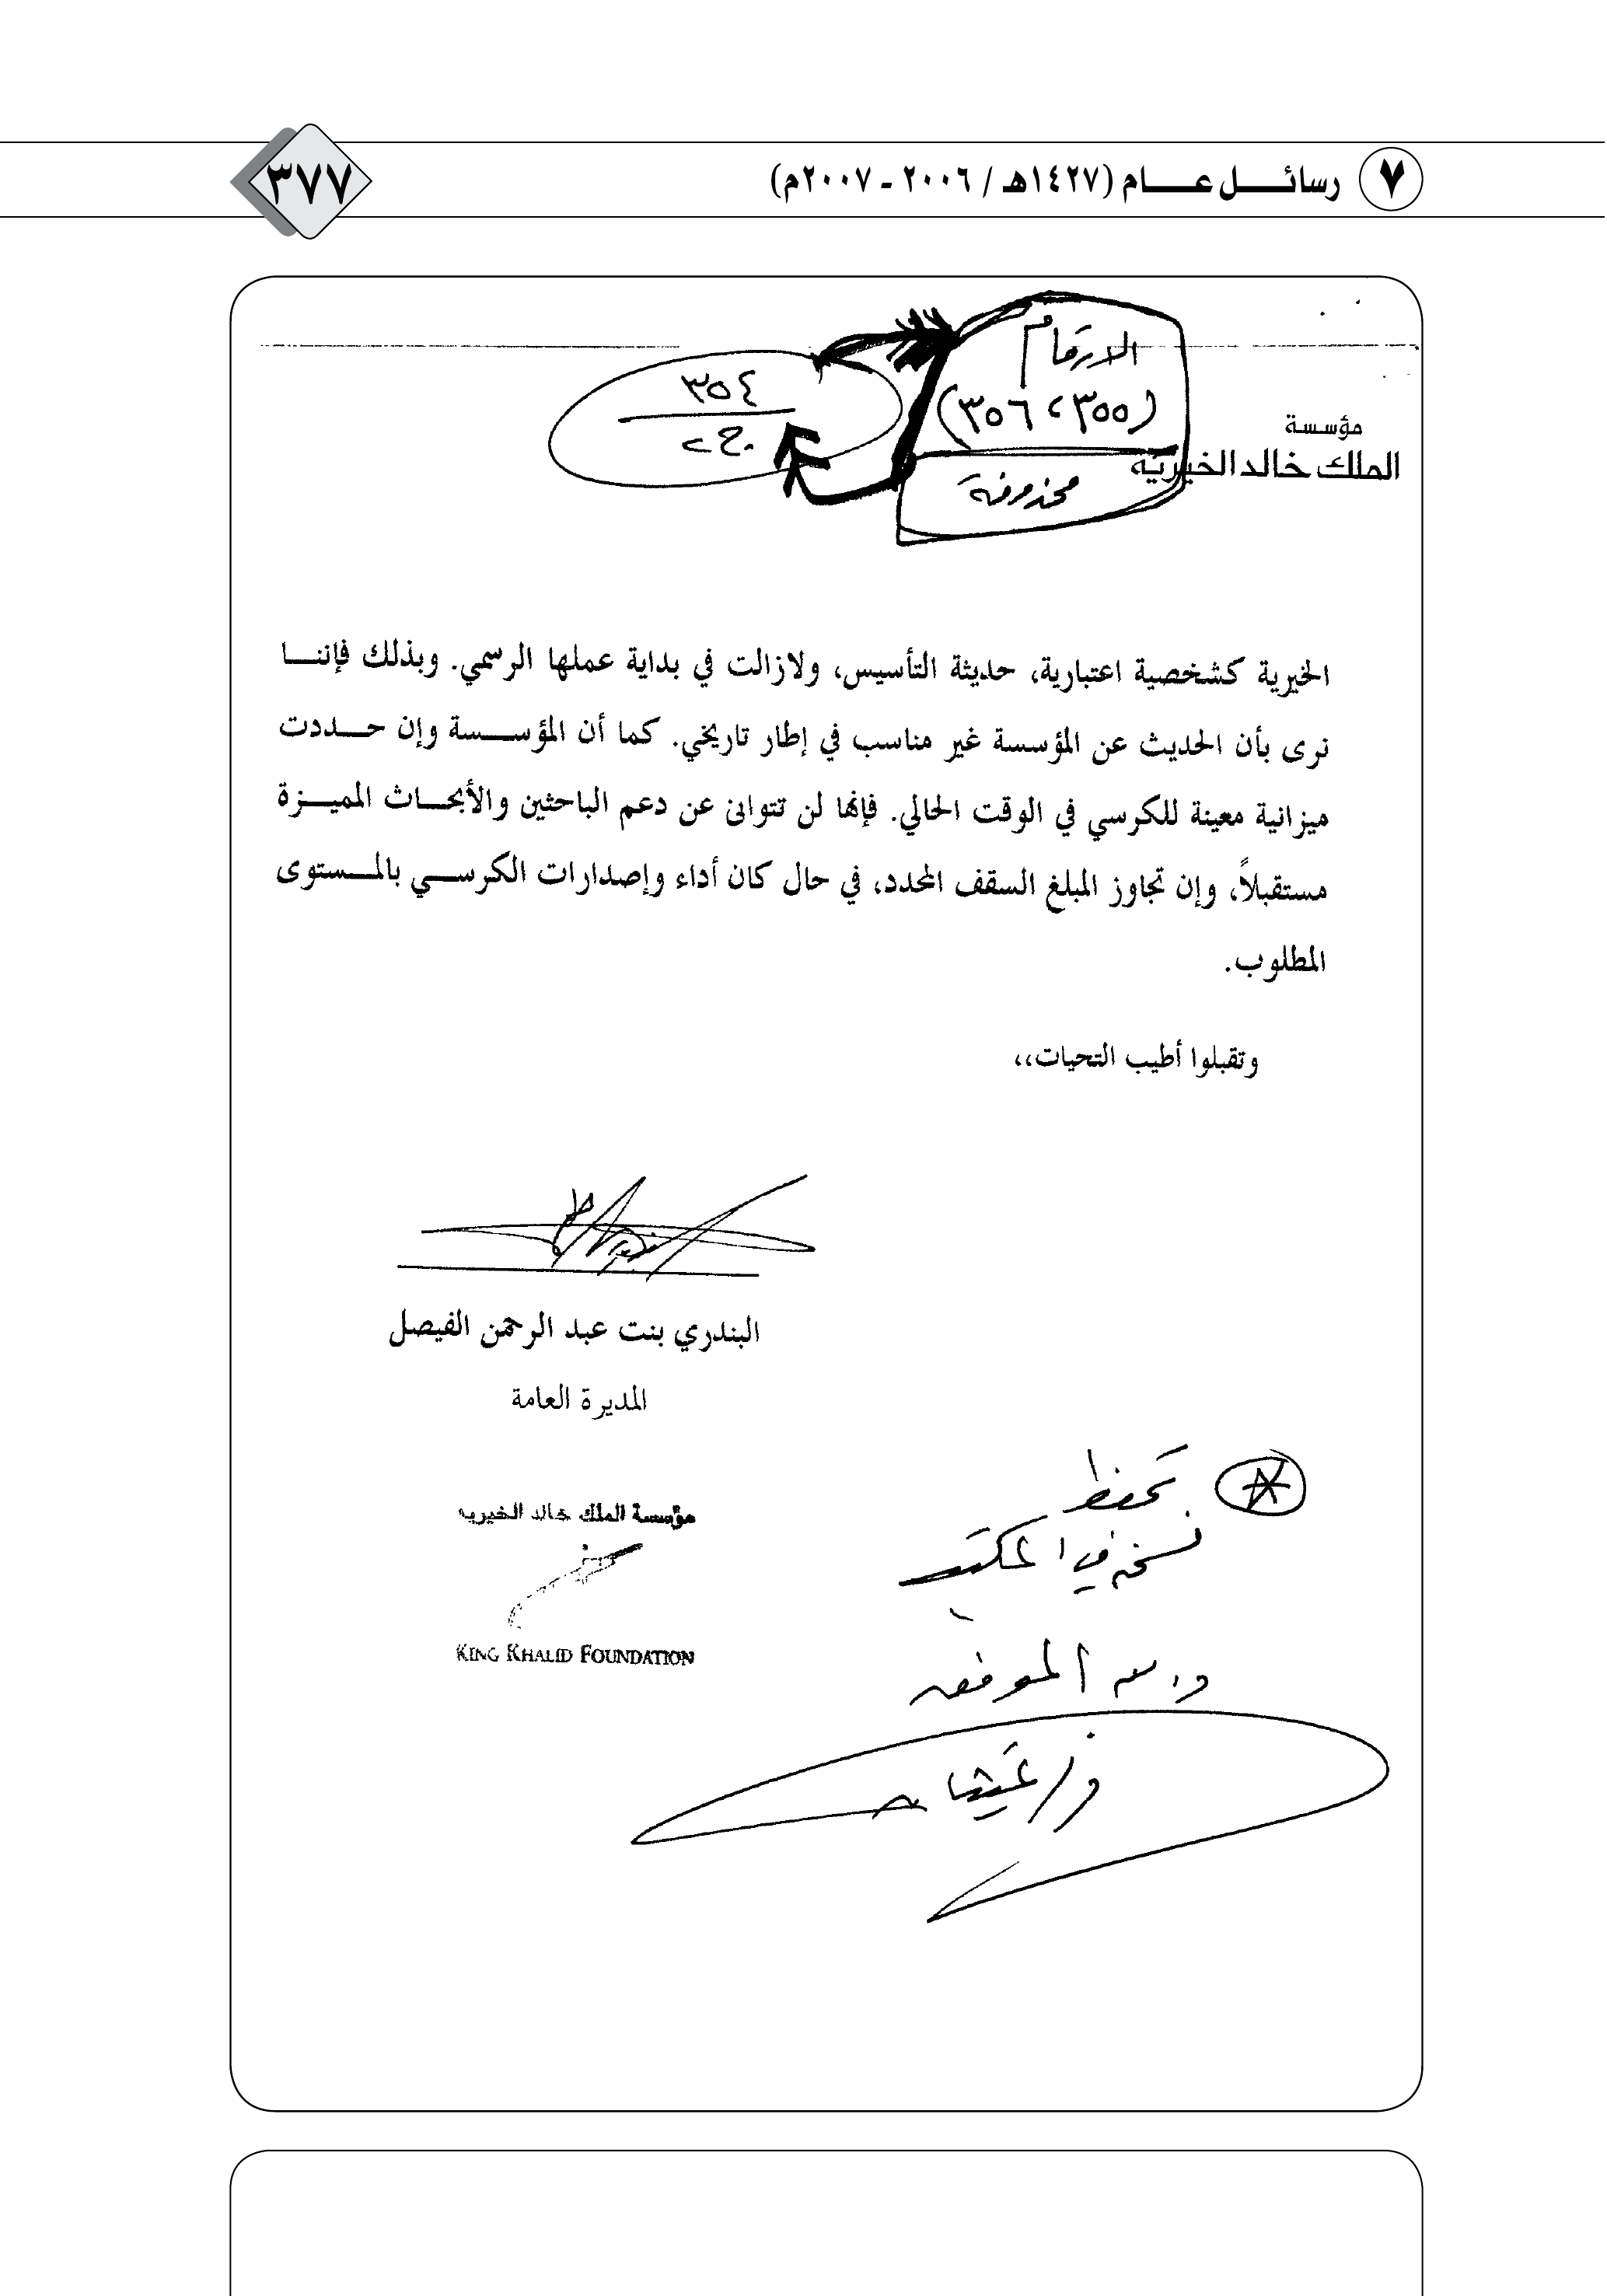 ٧ رسائل عام (١٤٢٧هـ / ٢٠٠٦ - ٢٠٠٧م)
٣٧٧
الارقام
(٣٥٥، ٣٥٦)
محذوفة
٣٥٤
مؤسسة
الملك خالد الخيرية
الخيرية كشخصية اعتبارية، حديثة التأسيس، ولازالت في بداية عملها الرسمي. وبذلك فإننا
نرى بأن الحديث عن المؤسسة غير مناسب في إطار تاريخي. كما أن المؤسسة وإن حددت
ميزانية معينة للكرسي في الوقت الحالي. فإنها لن تتوانى عن دعم الباحثين والأبحاث المميزة
مستقبلاً، وإن تجاوز المبلغ السقف المحدد، في حال كان أداء وإصدارات الكرسي بالمستوى
المطلوب.
وتقبلوا أطيب التحيات،،
البندري بنت عبد الرحمن الفيصل
المديرة العامة
مؤسسة الملك خالد الخيرية
KING KHALID FOUNDATION
تحفظ
نسخة في المكتب
الموفق